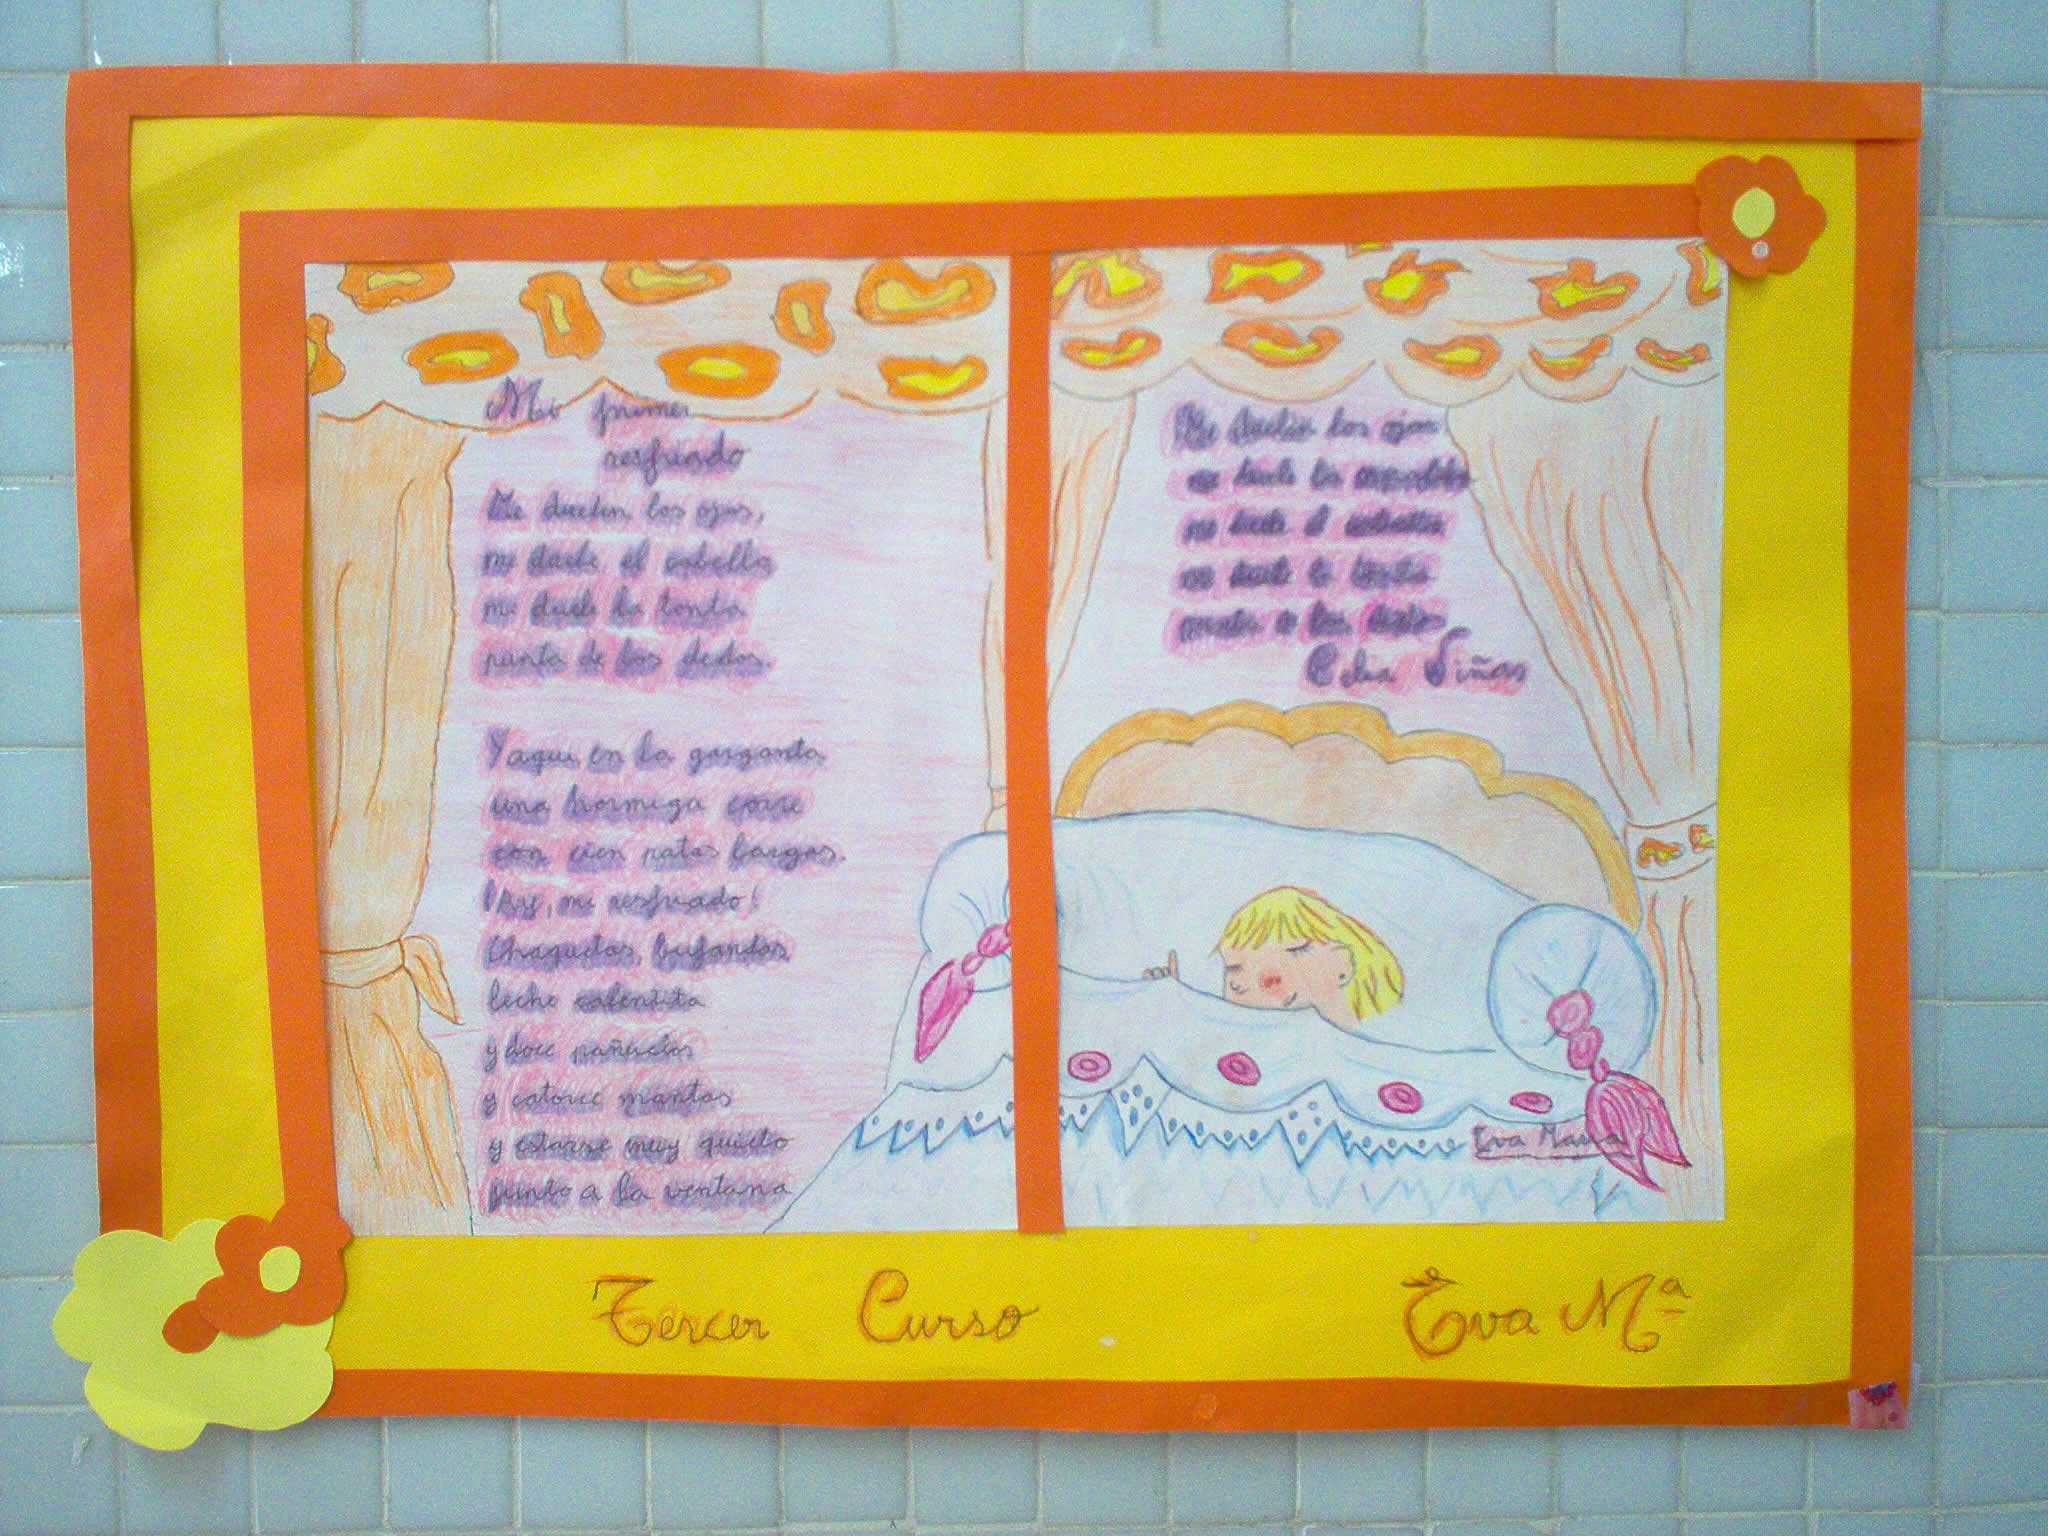 Mi primer
resfriado
Me duelen los ojos,
me duele el cabello
me duele la tonta
punta de los dedos.
Y aquí en la garganta
una hormiga corre
con cien patas largas.
¡Ay, mi resfriado!
Chaquetas, bufandas,
leche calentita
y doce pañuelos
y catorce mantas
y estarse muy quieto
junto a la ventana
Me duelen los ojos
me duele la espalda
me duele el cabello
me duele la tonta
punta de los dedos
Celia Viñas
Eva María
Tercer Curso
Eva Mª